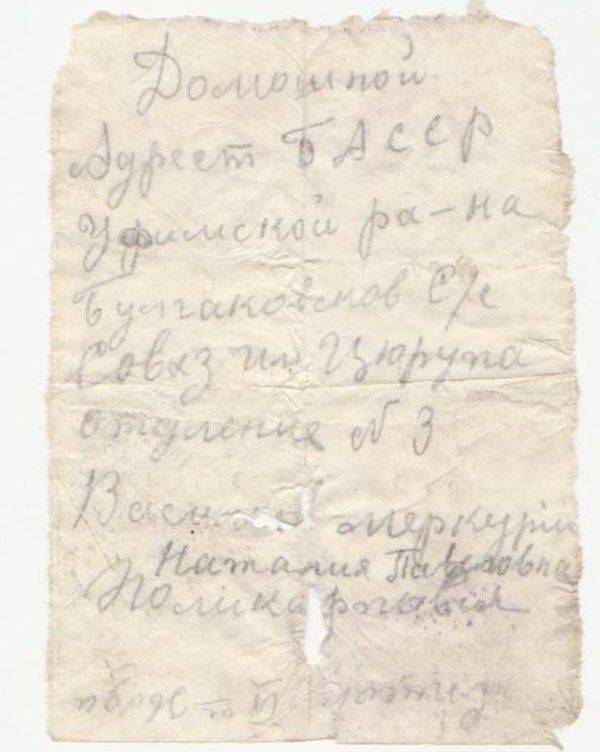 Домошной
Адрест БАССР
Уфимской ра-на
Булгаковсков С/с
Совхз им Цюрупа
отделение N 3
Меркурии
Наталия Павловна